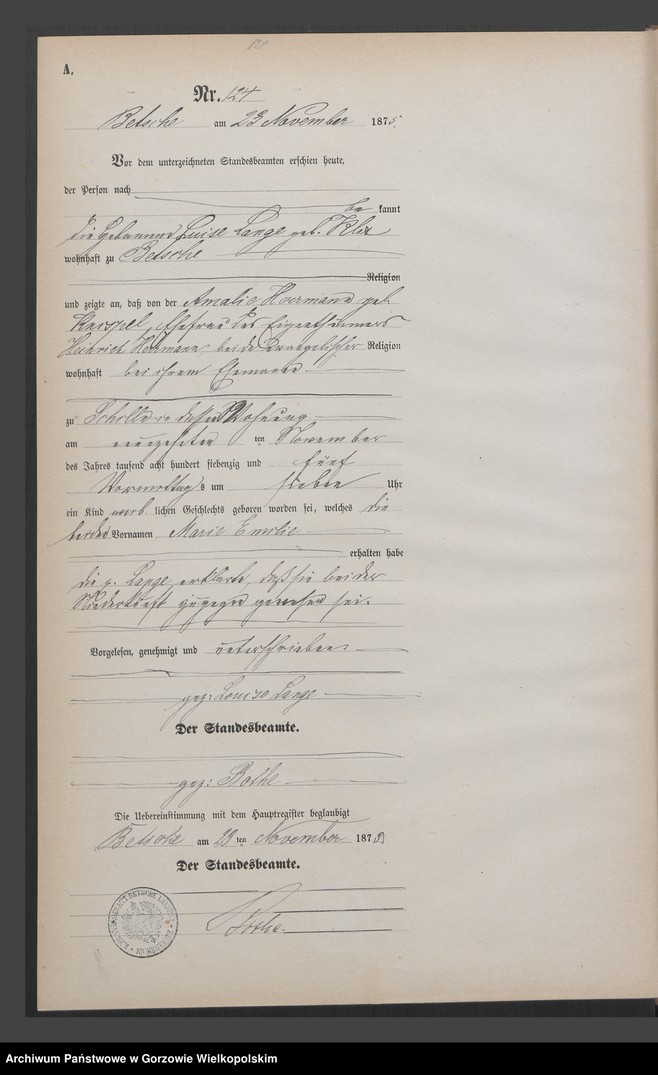 A.
Nr. 124
Betsche am 23 November 1875.
Vor dem unterzeichneten Standesbeamten erschien heute,
der Person nach
be kannt
die Hebamme Luise Lange geb. Klix
wohnhaft zu Betsche
Religion
und zeigte an, daß von der Amalie Hoermann geb.
Knispel, Ehefrau des Eigenthümers
Heinrich Hoermann, beide Evangelischer Religion
wohnhaft bei ihrem Ehemanne
zu in dessen Wohnung
am neunzehnten ten November
des Jahres tausend acht hundert siebenzig und fünf
Vormittags um sieben Uhr
ein Kind weib lichen Geschlechts geboren worden sei, welches die
beiden Vornamen Marie Emilie
erhalten habe
die p. Lange erklärte, daß sie bei der
Niederkunft zugegen gewesen sei.
Vorgelesen, genehmigt und unterschrieben
gez: Louise Lange
Der Standesbeamte.
gez: Bothe
Die Uebereinstimmung mit dem Hauptregister beglaubigt
Betsche am 23 ten November 187
Der Standesbeamte.
Bothe.
Archiwum Państwowe w Gorzowie Wielkopolskim